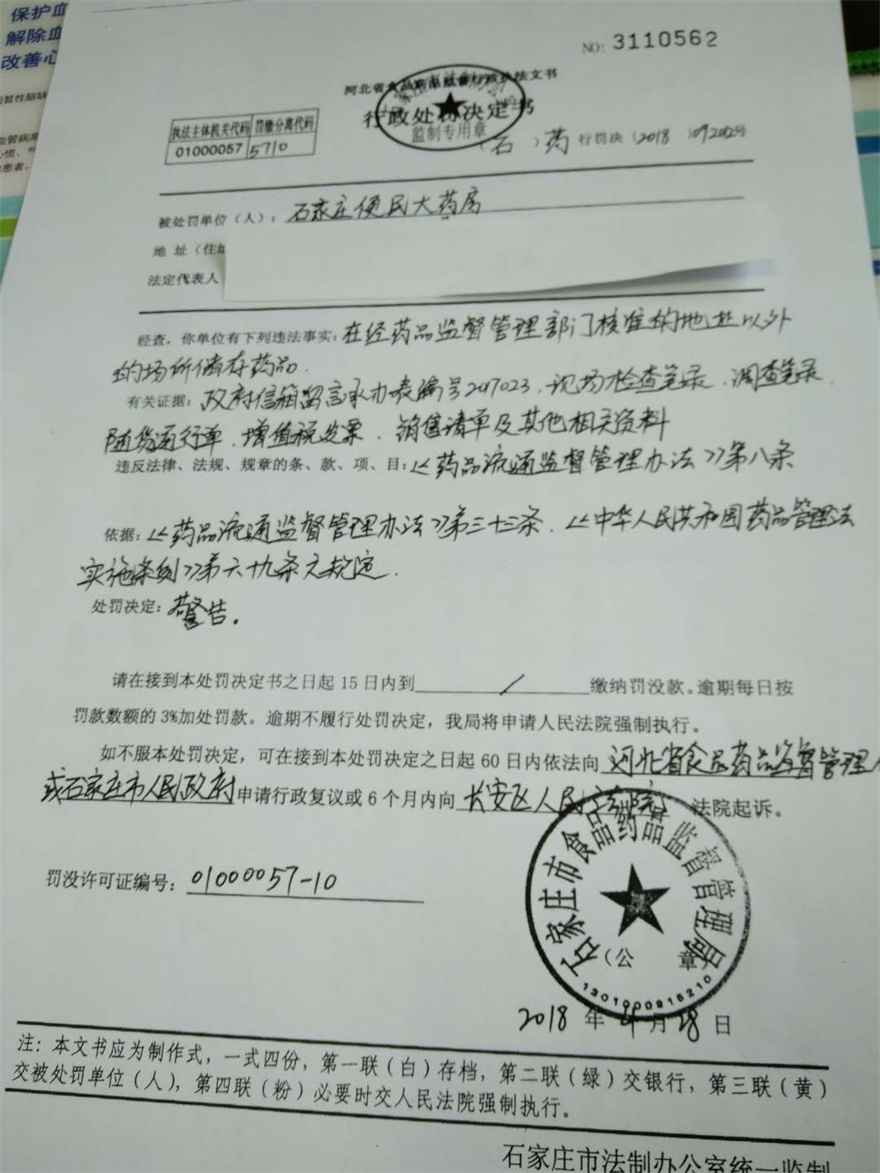 保护血
解除血
改善心
NO: 3110562
河北省食品药品监督行政执法文书
行政处罚决定书
监制专用章
执法主体机关代码 罚缴分离代码
01000057 5710
(石)药 行罚决(2018)
被处罚单位(人):石家庄便民大药房
地 址(住址
法定代表人
经查,你单位有下列违法事实:在经药品监督管理部门核准的地址以外
的场所储存药品.
有关证据:政府信箱留言承办表编号247023、现场检查笔录、调查笔录、
随货通行单、增值税发票、销售清单及其他相关资料
违反法律、法规、规章的条、款、项、目:《药品流通监督管理办法》第八条
依据:《药品流通监督管理办法》第三十三条、《中华人民共和国药品管理法
实施条例》第六十九条之规定.
处罚决定:警告.
请在接到本处罚决定书之日起 15 日内到 / 缴纳罚没款。逾期每日按
罚款数额的 3%加处罚款。逾期不履行处罚决定,我局将申请人民法院强制执行。
如不服本处罚决定,可在接到本处罚决定之日起 60 日内依法向 河北省食品药品监督管理
或石家庄市人民政府申请行政复议或 6 个月内向 长安区人民法院 法院起诉。
罚没许可证编号:01000057-10
石家庄市食品药品监督管理局
(公 章
1301000916210
2018 年 4 月 28 日
注:本文书应为制作式,一式四份,第一联(白)存档,第二联(绿)交银行,第三联(黄)
交被处罚单位(人),第四联(粉)必要时交人民法院强制执行。
石家庄市法制办公室统一监制